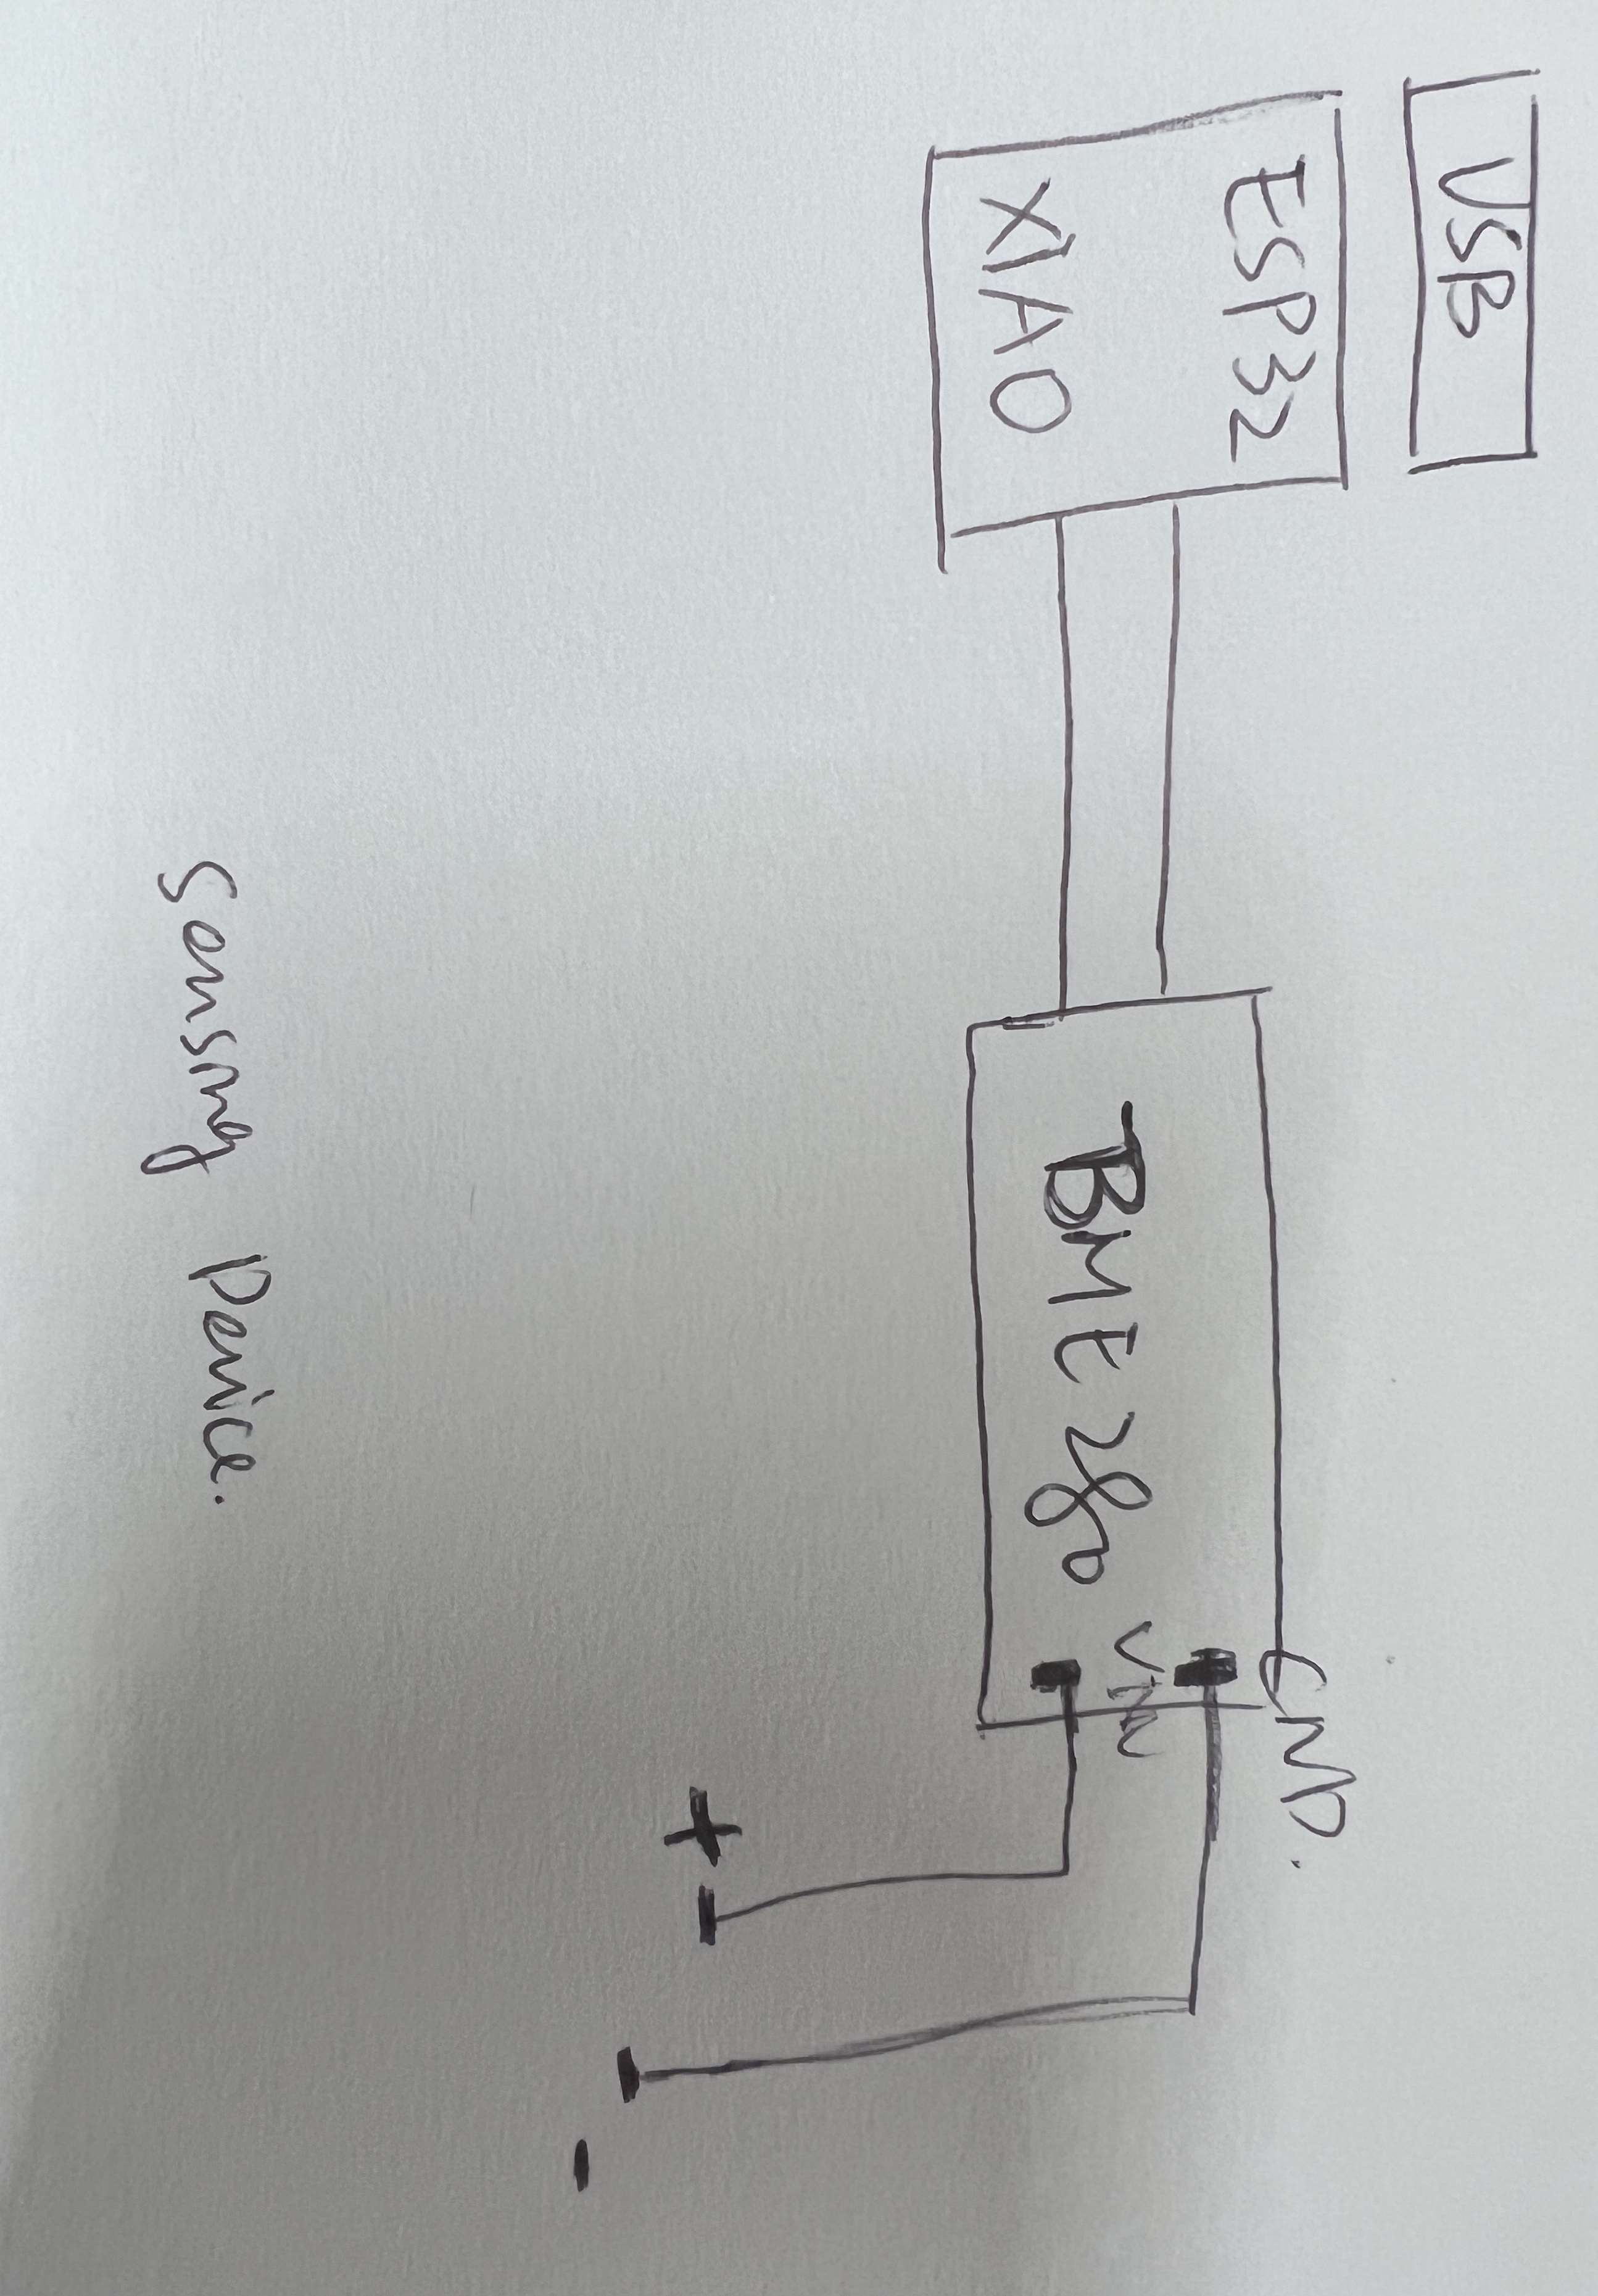 USB
ESP32
XIAO
BME280
GND.
VIN
+
-
Sensing Device.